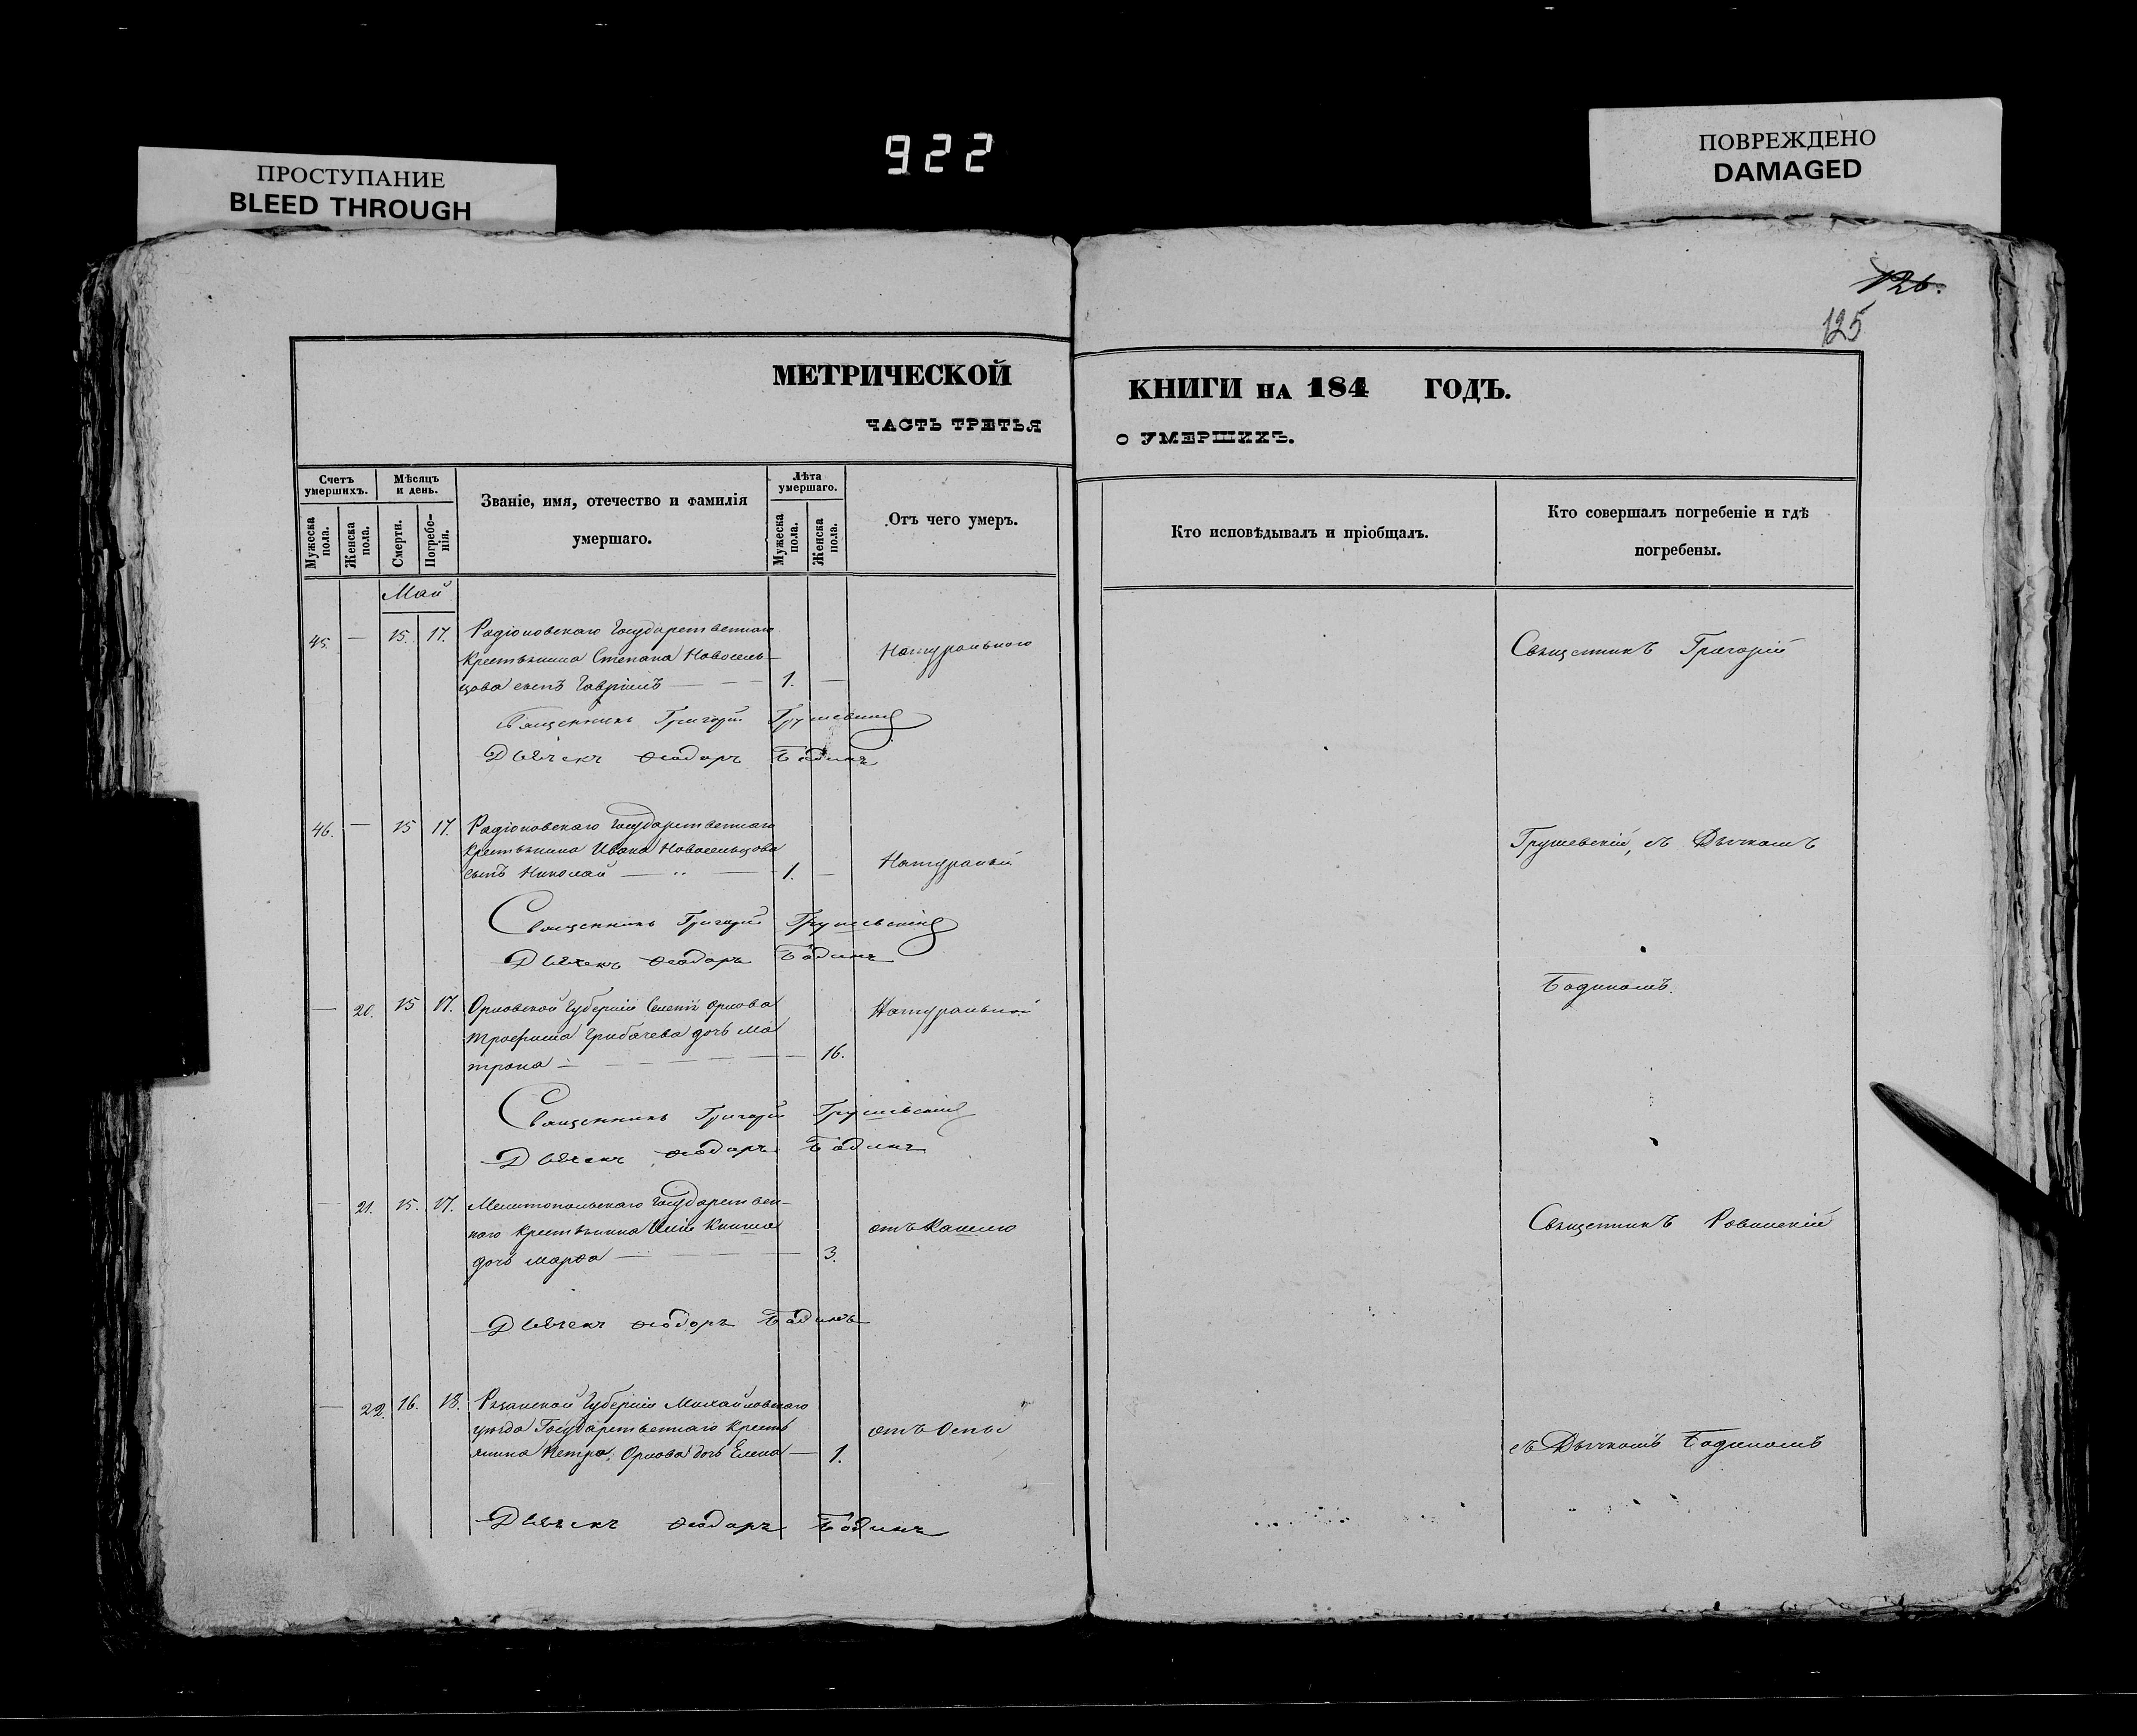 922
ПРОСТУПАНИЕ
BLEED THROUGH
ПОВРЕЖДЕНО
DAMAGED
126.
125
МЕТРИЧЕСКОЙ
ЧАСТЬ ТРЕТЬЯ
КНИГИ НА 184 ГОДЪ.
О УМЕРШИХЪ.
Счетъ умершихъ.
Мужеска пола.
Женска пола.
Мѣсяцъ и день.
Смерти.
Погребе-нія.
Званіе, имя, отечество и фамилія
умершаго.
Лѣта умершаго.
Мужеска пола.
Женска пола.
Отъ чего умеръ.
Кто исповѣдывалъ и пріобщалъ.
Кто совершалъ погребеніе и гдѣ
погребены.
Май
45. — 15. 17. Радіоновскаго Государственнаго
Крестьянина Степана Новосель-
цова сынъ Гавріилъ — 1. —
Натуральною
Священникъ Григорій Грушевскій
Дьячекъ Ѳеодоръ Бодинъ
46. — 15 17. Радіоновскаго Государственнаго
Крестьянина Ивана Новосельцова
сынъ Николай — 1. —
Священникъ Григорій Грушевскій
Дьячекъ Ѳеодоръ Бодинъ
— 20. 15 17. Орловской Губерніи Орлова
Трофима Грибачева дочь Ма
трона — 16.
Натуральной
Священникъ Григорій Грушевскій
Дьячекъ Ѳеодоръ Бодинъ
— 21. 15. 17. Мелитопольскаго Государствен-
наго Крестьянина Иліи Книша
дочь Марѳа — 3.
отъ Кашлю
Дьячекъ Ѳеодоръ Бодинъ
— 22. 16. 18. Рязанской Губерніи Михайловскаго
уѣзда Государственнаго Кресть
янина Петра Орлова дочь Елена — 1.
отъ Оспы
Дьячекъ Ѳеодоръ Бодинъ
Священникъ Григорій
Грушевскій, съ Дьячкомъ
Бодиномъ.
Священникъ
съ Дьячкомъ Бодиномъ